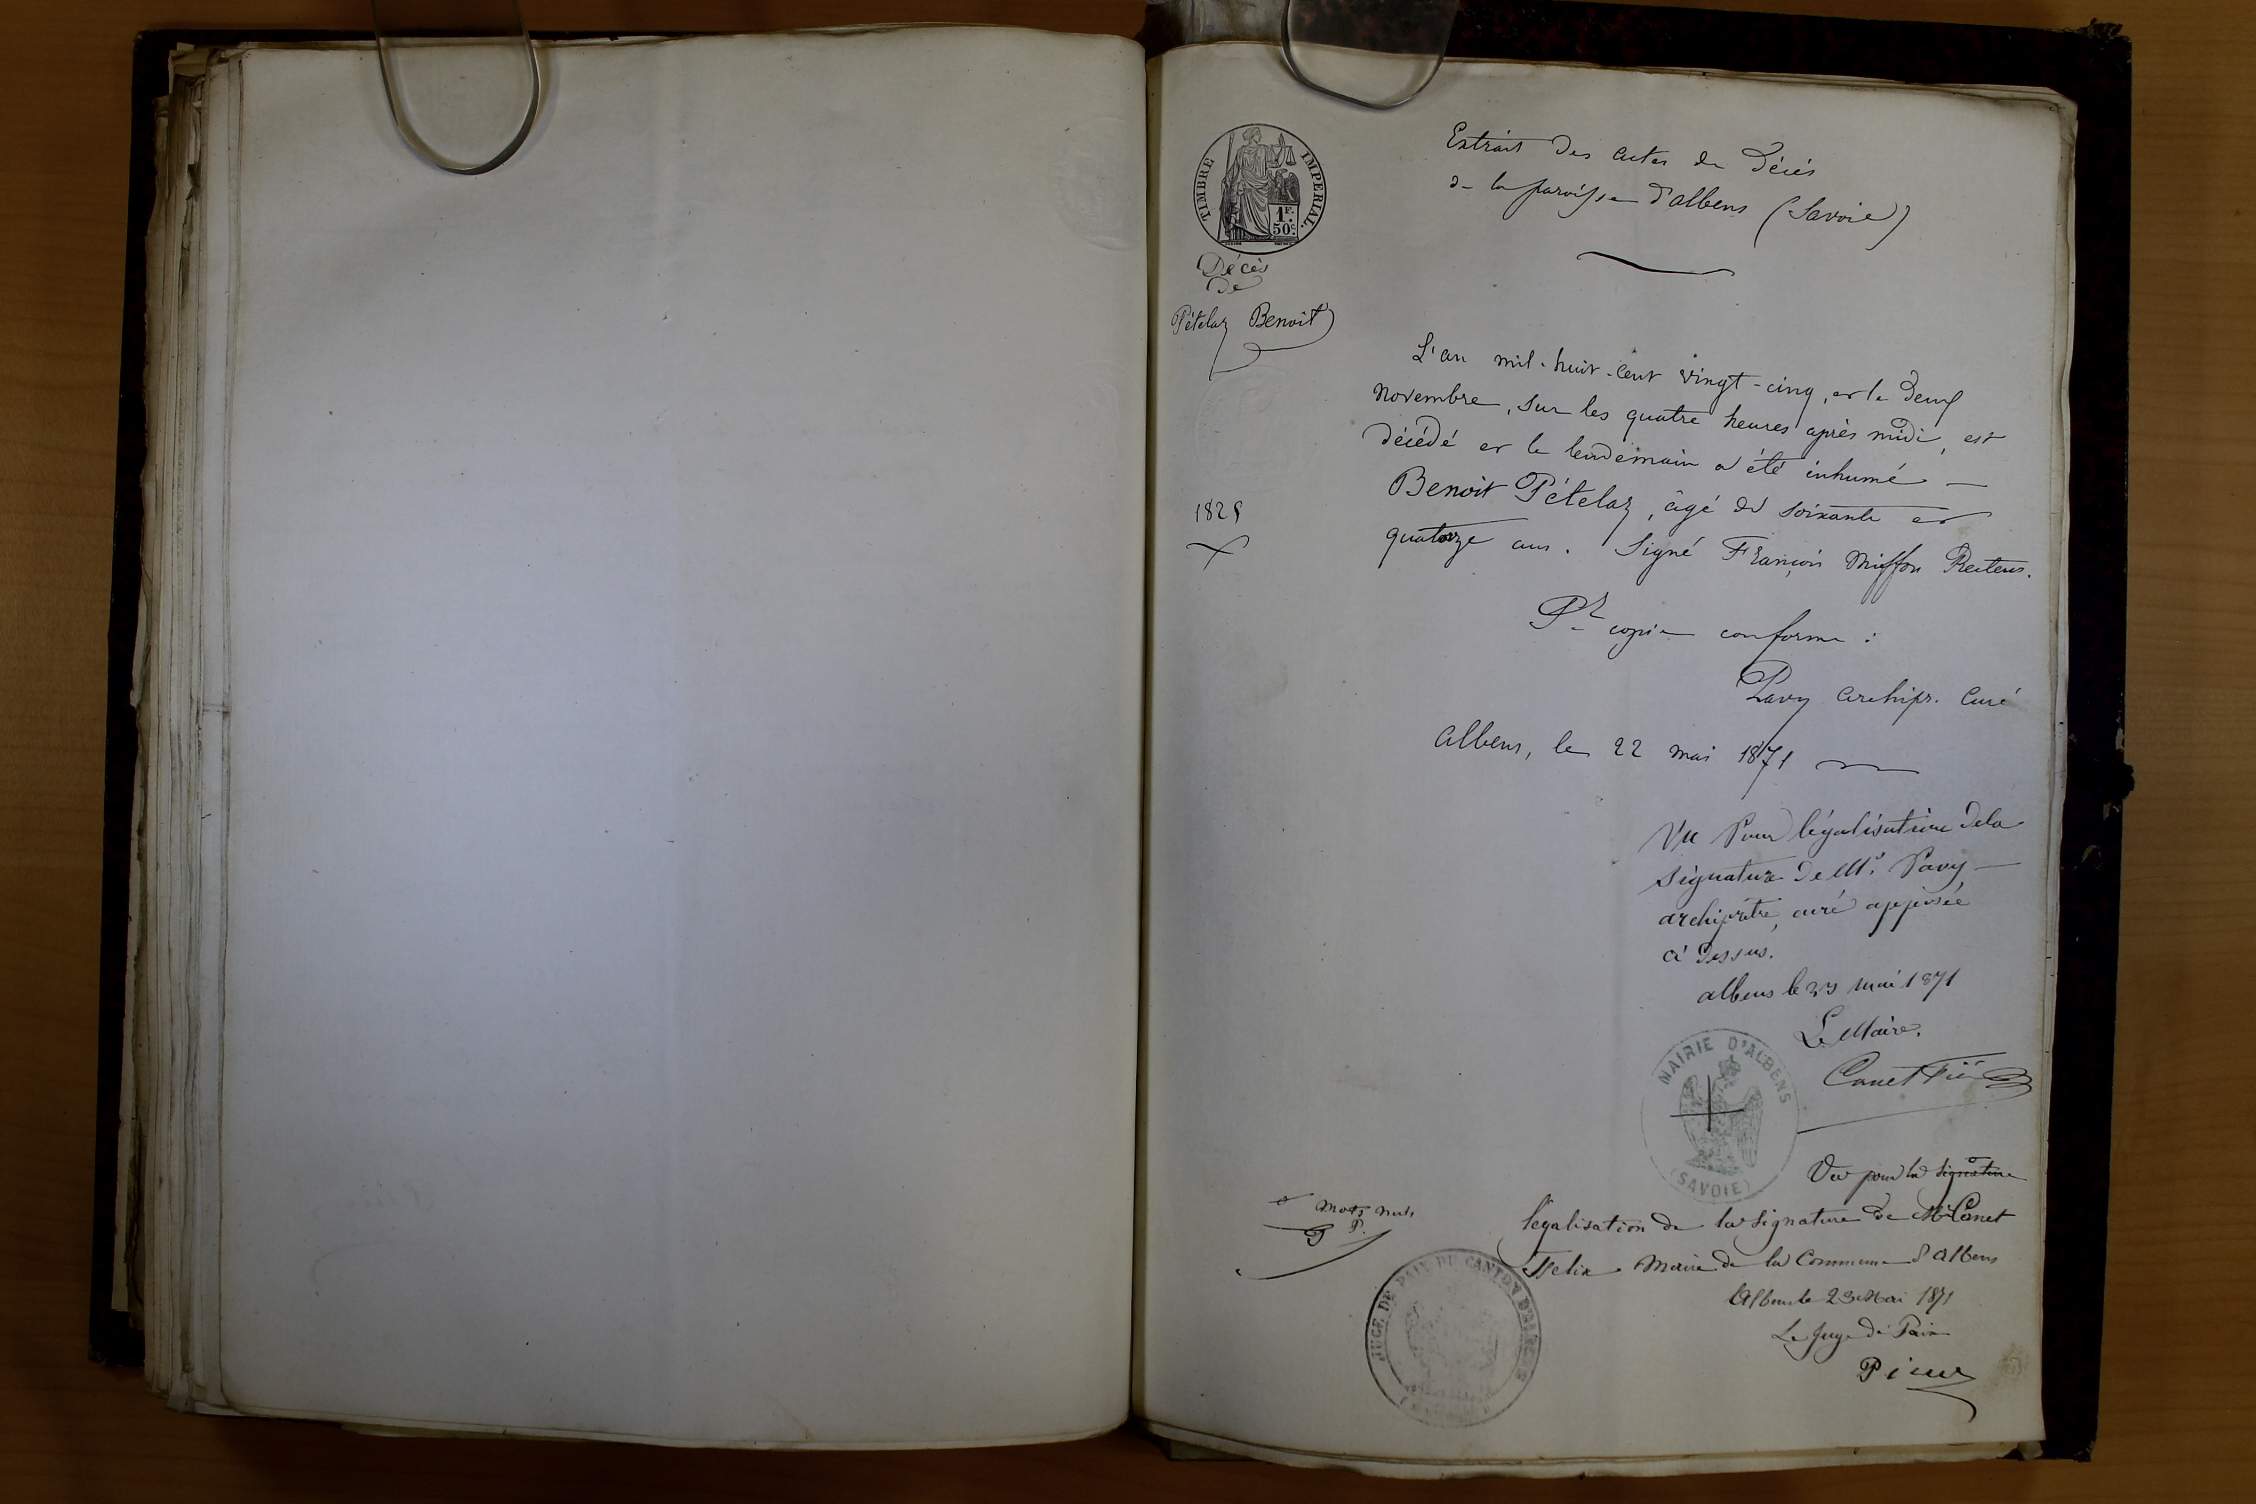 TIMBRE IMPERIAL.
1F.
50c.
Extrait des actes de Décés
de la paroisse d'albens (Savoie)
Décès
de
Pételaz Benoit
L'an mil-huit-cent vingt-cinq, et le deux
novembre, sur les quatre heures après midi, est
décédé et le lendemain a été inhumé —
Benoit Pételaz, âgé de soixante et
quatorze ans. Signé François Recteur.
1825
Pr copie conforme :
Pavy archipr. Curé
albens, le 22 mai 1871
Vu Pour légalisation de la
signature de Mr. Pavy —
archiprêtre, curé apposée
ci dessus.
albens le 23 mai 1871
Le Maire.
Canet
MAIRIE D'ALBENS
(SAVOIE)
Vu pour la signature
légalisation de la signature de Mr Canet
Felix Maire de la Commune d'Albens
Albens le 23 Mai 1871
Le Juge de Paix
mots nuls
P.
JUGE DE PAIX DU CANTON D'ALBENS